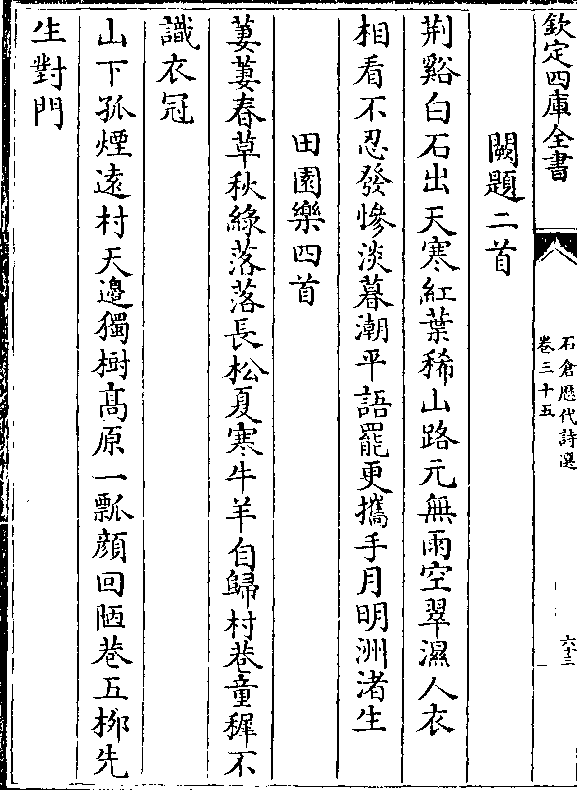 欽定四庫全書
石倉歴代詩選
卷三十五
六十三
闕題二首
荆谿白石出天寒紅葉稀山路元無雨空翠濕人衣
相看不忍發慘淡暮潮平語罷更攜手月明洲渚生
田園樂四首
萋萋春草秋綠落落長松夏寒牛羊自歸村巷童稺不
識衣冠
山下孤煙遠村天邉獨樹髙原一瓢顔回陋巷五栁先
生對門